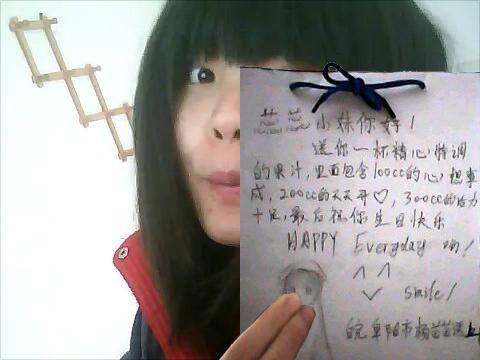 芸芸小妹你好！
送你一杯精心特调
的果汁，里面包含100cc的心想事
成，200cc的天天开♡，300cc的活力
十足，最后祝你生日快乐
HAPPY Everyday 哟！
smile！
皖阜阳市杨芸芸送上